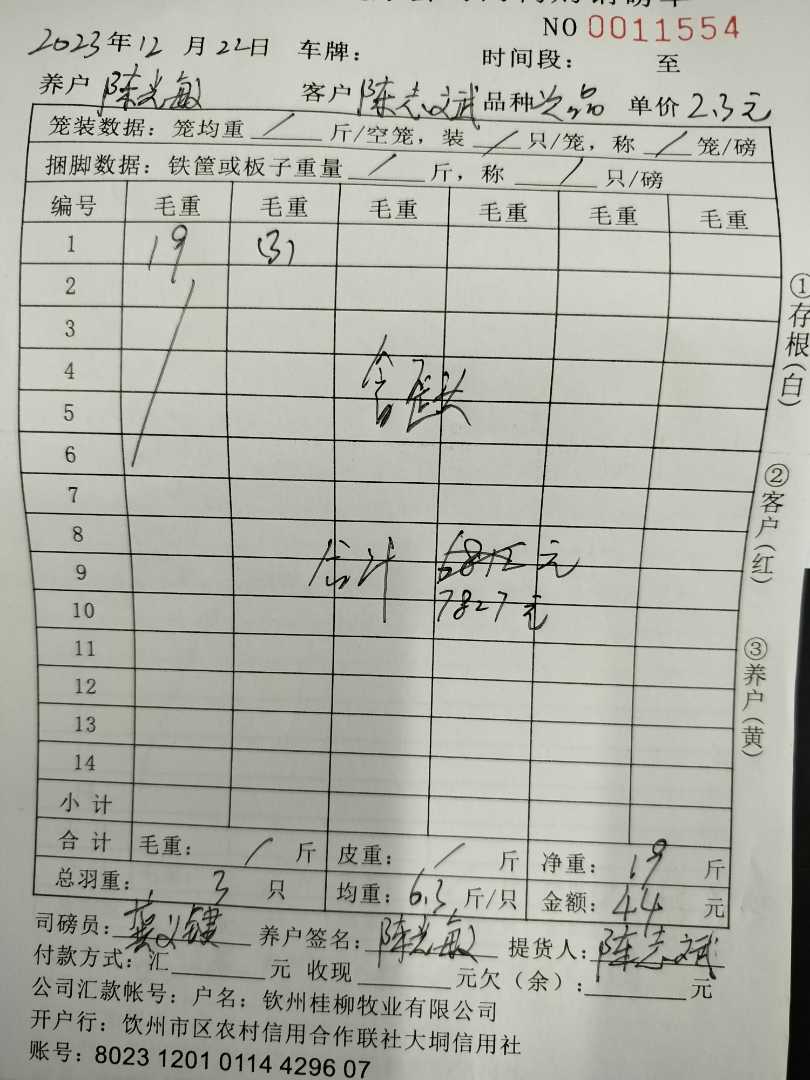 NO 0011554
2023年12月22日 车牌： 时间段： 至
养户 陈光敏 客户 陈志斌 品种 次品 单价 2.3元
笼装数据：笼均重 / 斤/空笼，装 / 只/笼，称 / 笼/磅
捆脚数据：铁筐或板子重量 / 斤，称 / 只/磅
编号 毛重 毛重 毛重 毛重 毛重 毛重
1 19 (3)
2
3
4
5
6
7
8
总计 6812元
9
10 7827元
11
12
13
14
小计
合计 毛重： / 斤 皮重： / 斤 净重：19 斤
总羽重： 3 只 均重：6.3 斤/只 金额：44 元
司磅员： 养户签名：陈光敏 提货人：陈志斌
付款方式：汇 元 收现 元欠（余）： 元
公司汇款帐号：户名：钦州桂柳牧业有限公司
开户行：饮州市区农村信用合作联社大垌信用社
账号：8023 1201 0114 4296 07
①存根(白)
②客户(红)
③养户(黄)